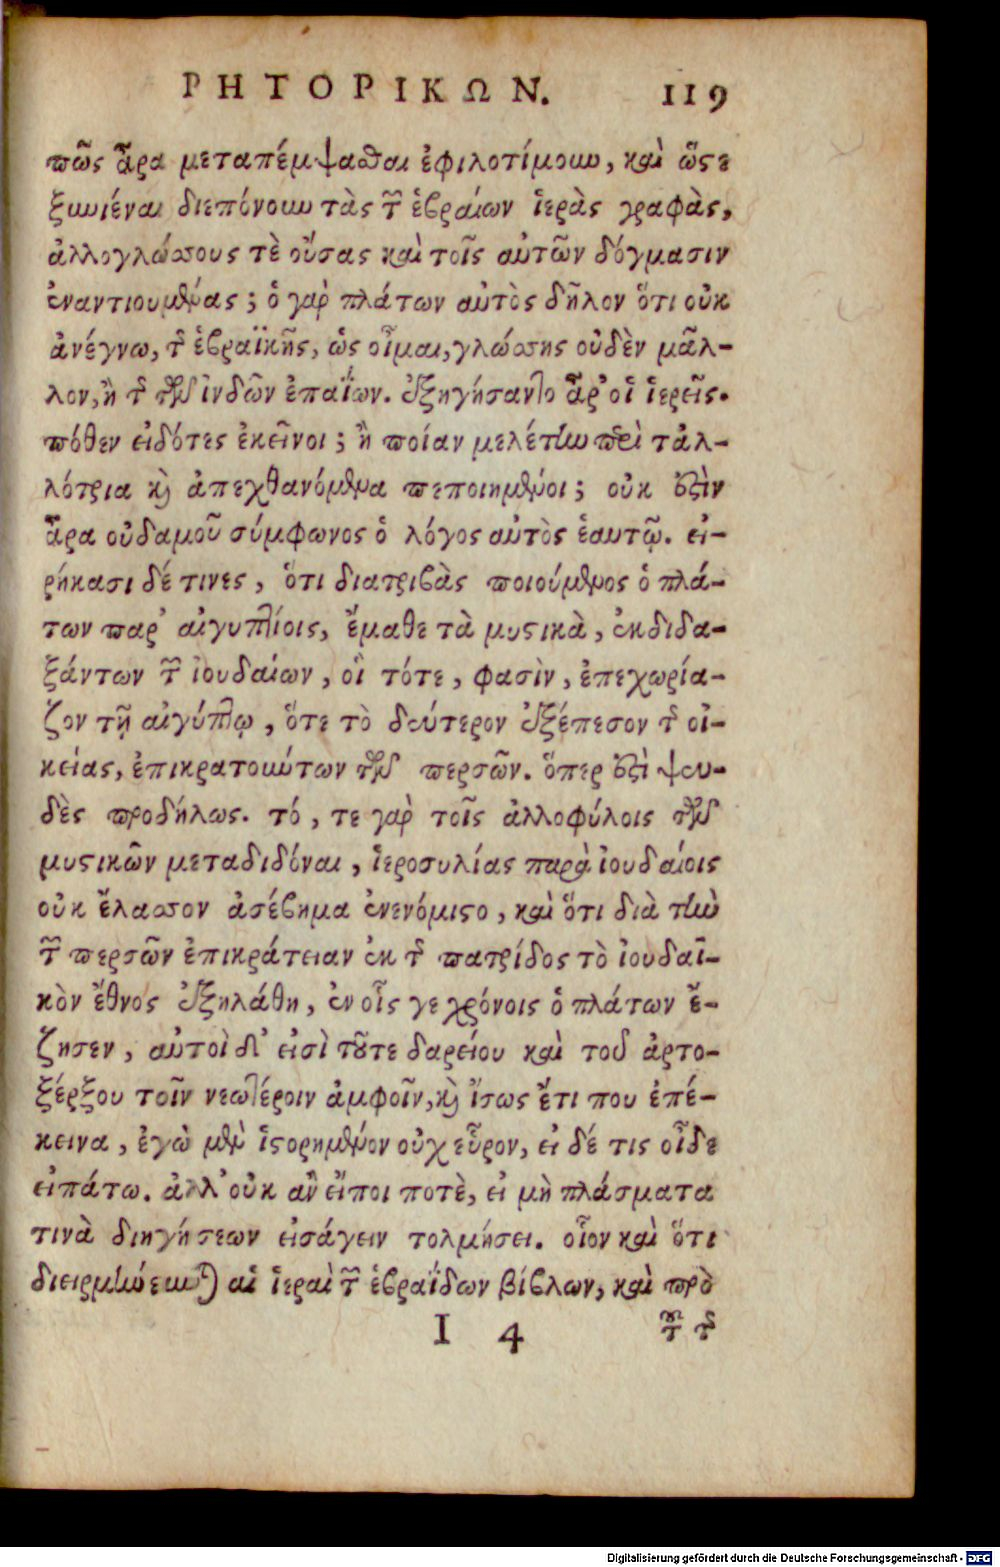 ΡΗΤΟΡΙΚΩΝ. 119
πῶς ἆρα μεταπέμψασθαι ἐφιλοτίμουν, καὶ ὥστε
ξυνιέναι διεπόνουν τὰς τῶν ἑβραίων ἱερὰς γραφὰς,
ἀλλογλώσσους τὲ οὔσας καὶ τοῖς αὐτῶν δόγμασιν
ἐναντιουμένας; ὁ γὰρ πλάτων αὐτὸς δῆλον ὅτι οὐκ
ἀνέγνω, τῆς ἑβραϊκῆς, ὡς οἶμαι, γλώσσης οὐδὲν μᾶλ-
λον, ἢ τῆς τῶν ἰνδῶν ἐπαΐων. ἐξηγήσαντο ἆρ' οἱ ἱερεῖς.
πόθεν εἰδότες ἐκεῖνοι; ἢ ποίαν μελέτην περὶ τἀλ-
λότρια καὶ ἀπεχθανόμενα πεποιημένοι; οὐκ ἔστιν
ἆρα οὐδαμοῦ σύμφωνος ὁ λόγος αὐτὸς ἑαυτῷ. εἰ-
ρήκασι δέ τινες, ὅτι διατριβὰς ποιούμενος ὁ πλά-
των παρ' αἰγυπτίοις, ἔμαθε τὰ μυστικὰ, ἐκδιδα-
ξάντων τῶν ἰουδαίων, οἳ τότε, φασὶν, ἐπεχωρία-
ζον τῇ αἰγύπτῳ, ὅτε τὸ δεύτερον ἐξέπεσον τῆς οἰ-
κείας, ἐπικρατούντων τῶν περσῶν. ὅπερ ἐστὶ ψευ-
δὲς προδήλως. τό, τε γὰρ τοῖς ἀλλοφύλοις τῶν
μυστικῶν μεταδιδόναι, ἱεροσυλίας παρὰ ἰουδαίοις
οὐκ ἔλασσον ἀσέβημα ἐνενόμιστο, καὶ ὅτι διὰ τὴν
τῶν περσῶν ἐπικράτειαν ἐκ τῆς πατρίδος τὸ ἰουδαϊ-
κὸν ἔθνος ἐξηλάθη, ἐν οἷς γε χρόνοις ὁ πλάτων ἔ-
ζησεν, αὐτοὶ δ' εἰσὶ τοῦτε δαρείου καὶ τοῦ ἀρτο-
ξέρξου τοῖν νεωτέροιν ἀμφοῖν, καὶ ἴσως ἔτι που ἐπέ-
κεινα, ἐγὼ μὲν ἱστορημένον οὐχ εὗρον, εἰ δέ τις οἶδε
εἰπάτω. ἀλλ' οὐκ ἂν εἴποι ποτὲ, εἰ μὴ πλάσματα
τινὰ διηγήσεων εἰσάγειν τολμήσει. οἷον καὶ ὅτι
διειρμήνευνται αἱ ἱεραὶ τῶν ἑβραΐδων βίβλων, καὶ πρὸ
I 4 τῶν τῆς
Digitalisierung gefördert durch die Deutsche Forschungsgemeinschaft - DFG